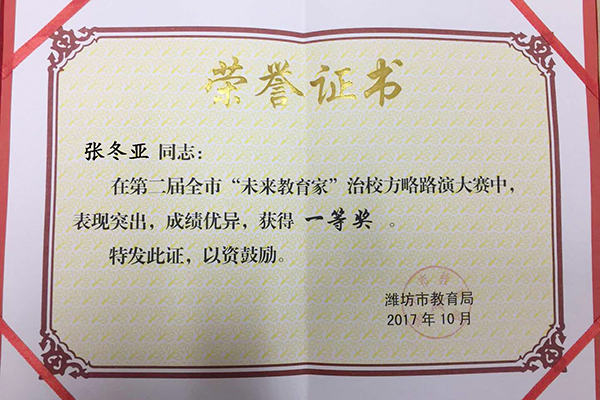 荣誉证书
张冬亚 同志：
在第二届全市“未来教育家”治校方略路演大赛中，
表现突出，成绩优异，获得 一等奖 。
特发此证，以资鼓励。
潍坊市教育局
2017 年 10 月